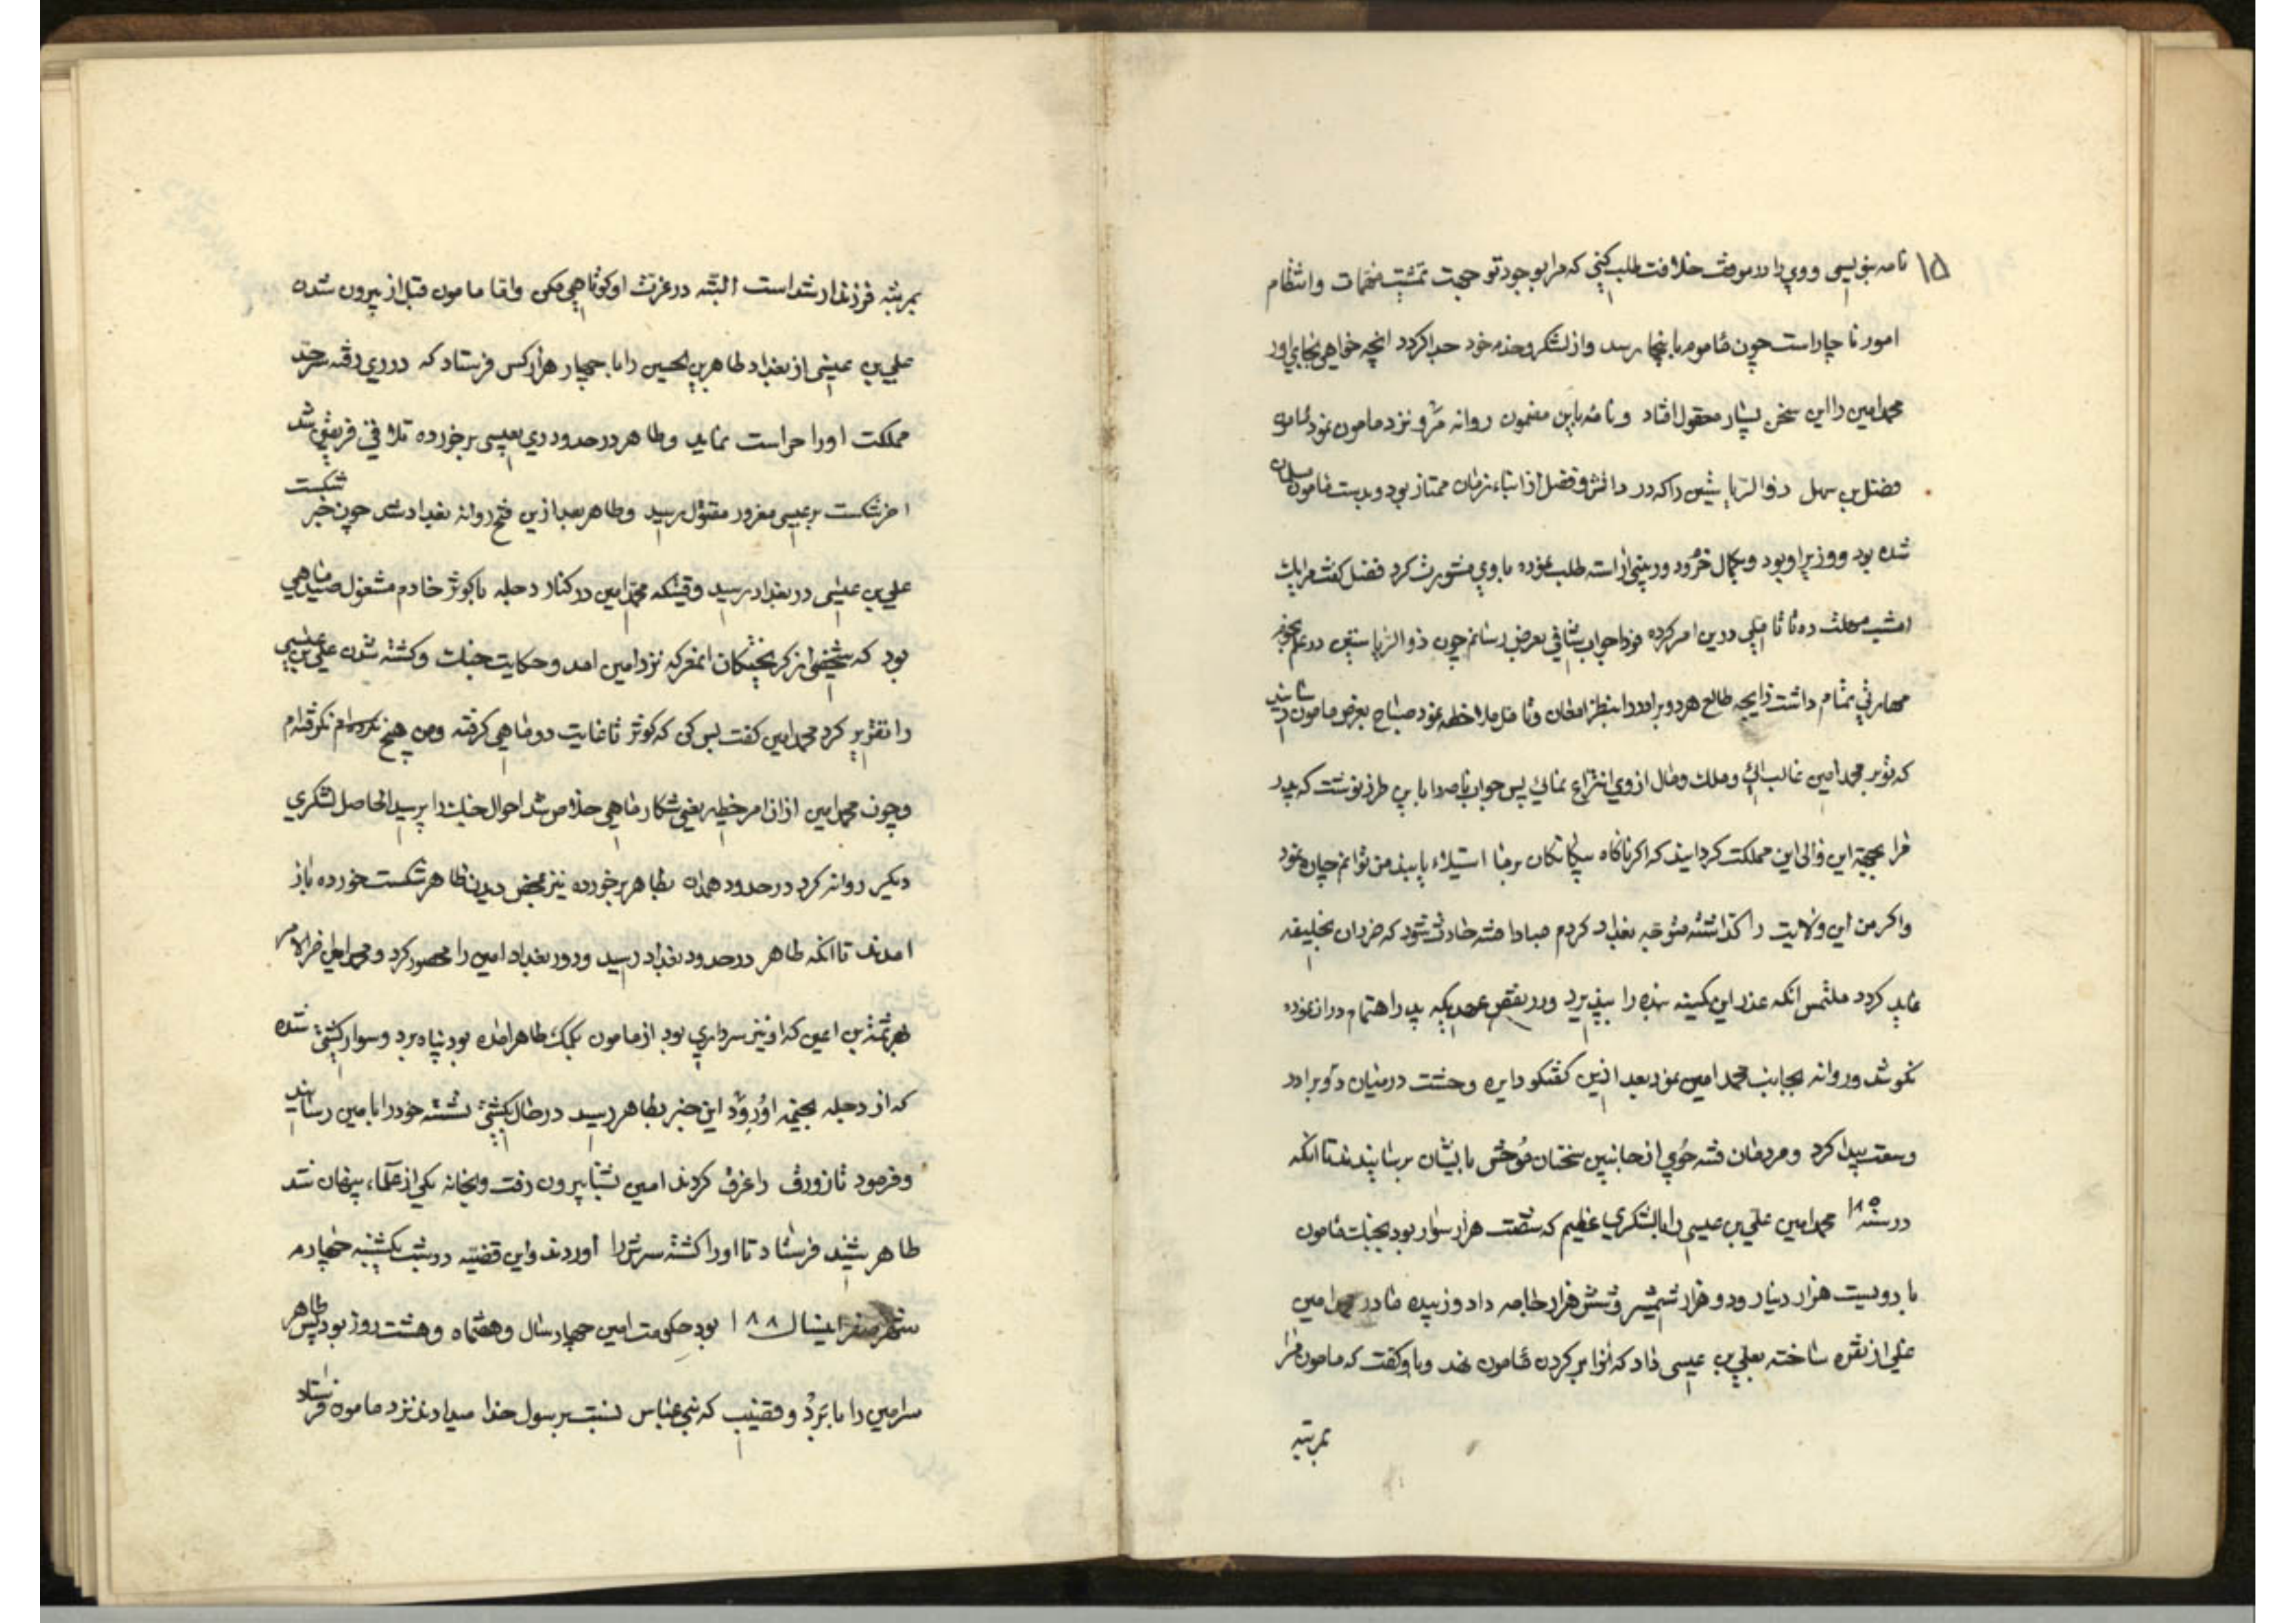 ۱۵ نامه بنویسی و ویرا در موقف خلافت طلب کنی که مرا بوجود تو جهت تمشیت مهمات و انتظام
امور ناچار است چون مامون باینجا رسد و از لشکر و خدم خود جدا کردد انچه خواهی بجای اور
محمد امین را این سخن بسیار معقول افتاد و نامه باین مضمون روانه مرو نزد مامون نمود مامون
فضل بن سهل ذوالریاستین را که در دانش و فضل از ابناء زمان ممتاز بود و بدست مامون مسلمان
شده بود و وزیر او بود و بکمال خرد و دوربینی اراسته طلب نموده با وی مشورت کرد فضل کفت مرا یک
امشب مهلت ده تا تاملی درین امر کرده فردا جواب شافی بعرض رسانم چون ذوالریاستین در علم نجوم
مهارتی تمام داشت زایجه طالع هر دو برادر را بنظر امعان و تامل ملاحظه نمود صباح بعرض مامون رسانید
که تو بر محمد امین غالب ائی و ملک و مال از وی انتزاع نمائی پس جواب نامه را باین طرز نوشت که پدر
مرا بجهة این والی این مملکت کردانید که اکر ناکاه بیکانکان بر ما استیلاء یابند من توانم چاره نمود
و اکر من این ولایت را کذاشته متوجه بغداد کردم مبادا فتنه حادث شود که ضرر ان بخلیفه
عاید کردد ملتمس انکه عذر این کمینه بنده را بپذیرد و در نقض عهدیکه پدر اهتمام در ان نموده
نکوشد و روانه بجانب محمد امین نمود بعد ازین کفتکو دایره وحشت در میان دو برادر
وسعت پیدا کرد و مردمان فتنه جوی از جانبین سخنان موحش بایشان برسانیدند تا انکه
در سنه ۱۸۵ محمد امین علی بن عیسی را با لشکری عظیم که شصت هزار سوار بود بجنک مامون
با دویست هزار دینار و دو هزار شمشیر و شش هزار جامه داد و زبیده مادر محمد امین
غلی از نقره ساخته بعلی بن عیسی داد که انرا بر کردن مامون نهد و با و کفت که مامون مرا
بمرتبه
بمرتبه فرزند ارشد است البته در عزت او کوتاهی مکن و اما مامون قبل از بیرون شدن
علی بن عیسی از بغداد طاهر بن الحسین را با چهار هزار کس فرستاد که در ری رفته سرحد
مملکت او را حراست نماید و طاهر در حدود ری بعیسی برخورده تلاقی فریقین شد
اخر شکست بر عیسی مغرور مقتول رسید و طاهر بعد ازین فتح روانه بغداد شد چون خبر شکست
علی بن عیسی در بغداد رسید وقتیکه محمد امین در کنار دجله با کوثر خادم مشغول صید ماهی
بود که شخصی از کریختکان انمعرکه نزد امین امد و حکایت جنک و کشته شدن علی بن عیسی
را تقریر کرد محمد امین کفت بس کن که کوثر تا غایت دو ماهی کرفته و من هیچ نکرفته‌ام
و چون محمد امین از ان امر خطیر یعنی شکار ماهی خلاص شد احوال جنک را پرسید الحاصل لشکری
دیکر روانه کرد در حدود همدان بطاهر برخورده نیز محض دیدن طاهر شکست خورده باز
امدند تا انکه طاهر در حدود بغداد رسید و در بغداد امین را محصور کرد و محمد امین اخر الامر
بهرثمة بن اعین که او نیز سرداری بود از مامون بکمک طاهر امده بود پناه برد و سوار کشتی شده
که از دجله بخیمه او رود این خبر بطاهر رسید در حال بکشتی نشسته خود را بامین رسانید
و فرمود تا زورق را غرق کردند امین بشنا بیرون رفت و بخانه یکی از علماء پنهان شد
طاهر شنید فرستاد تا او را کشته سرش را آوردند و این قضیه در شب یکشنبه چهارم
شهر صفر اینسال ۱۸۸ بود حکومت امین چهار سال و هفتماه و هشت روز بود پس طاهر
سر امین را با برد و قضیب که بنی عباس نسبت برسول خدا میدادند نزد مامون فرستاد